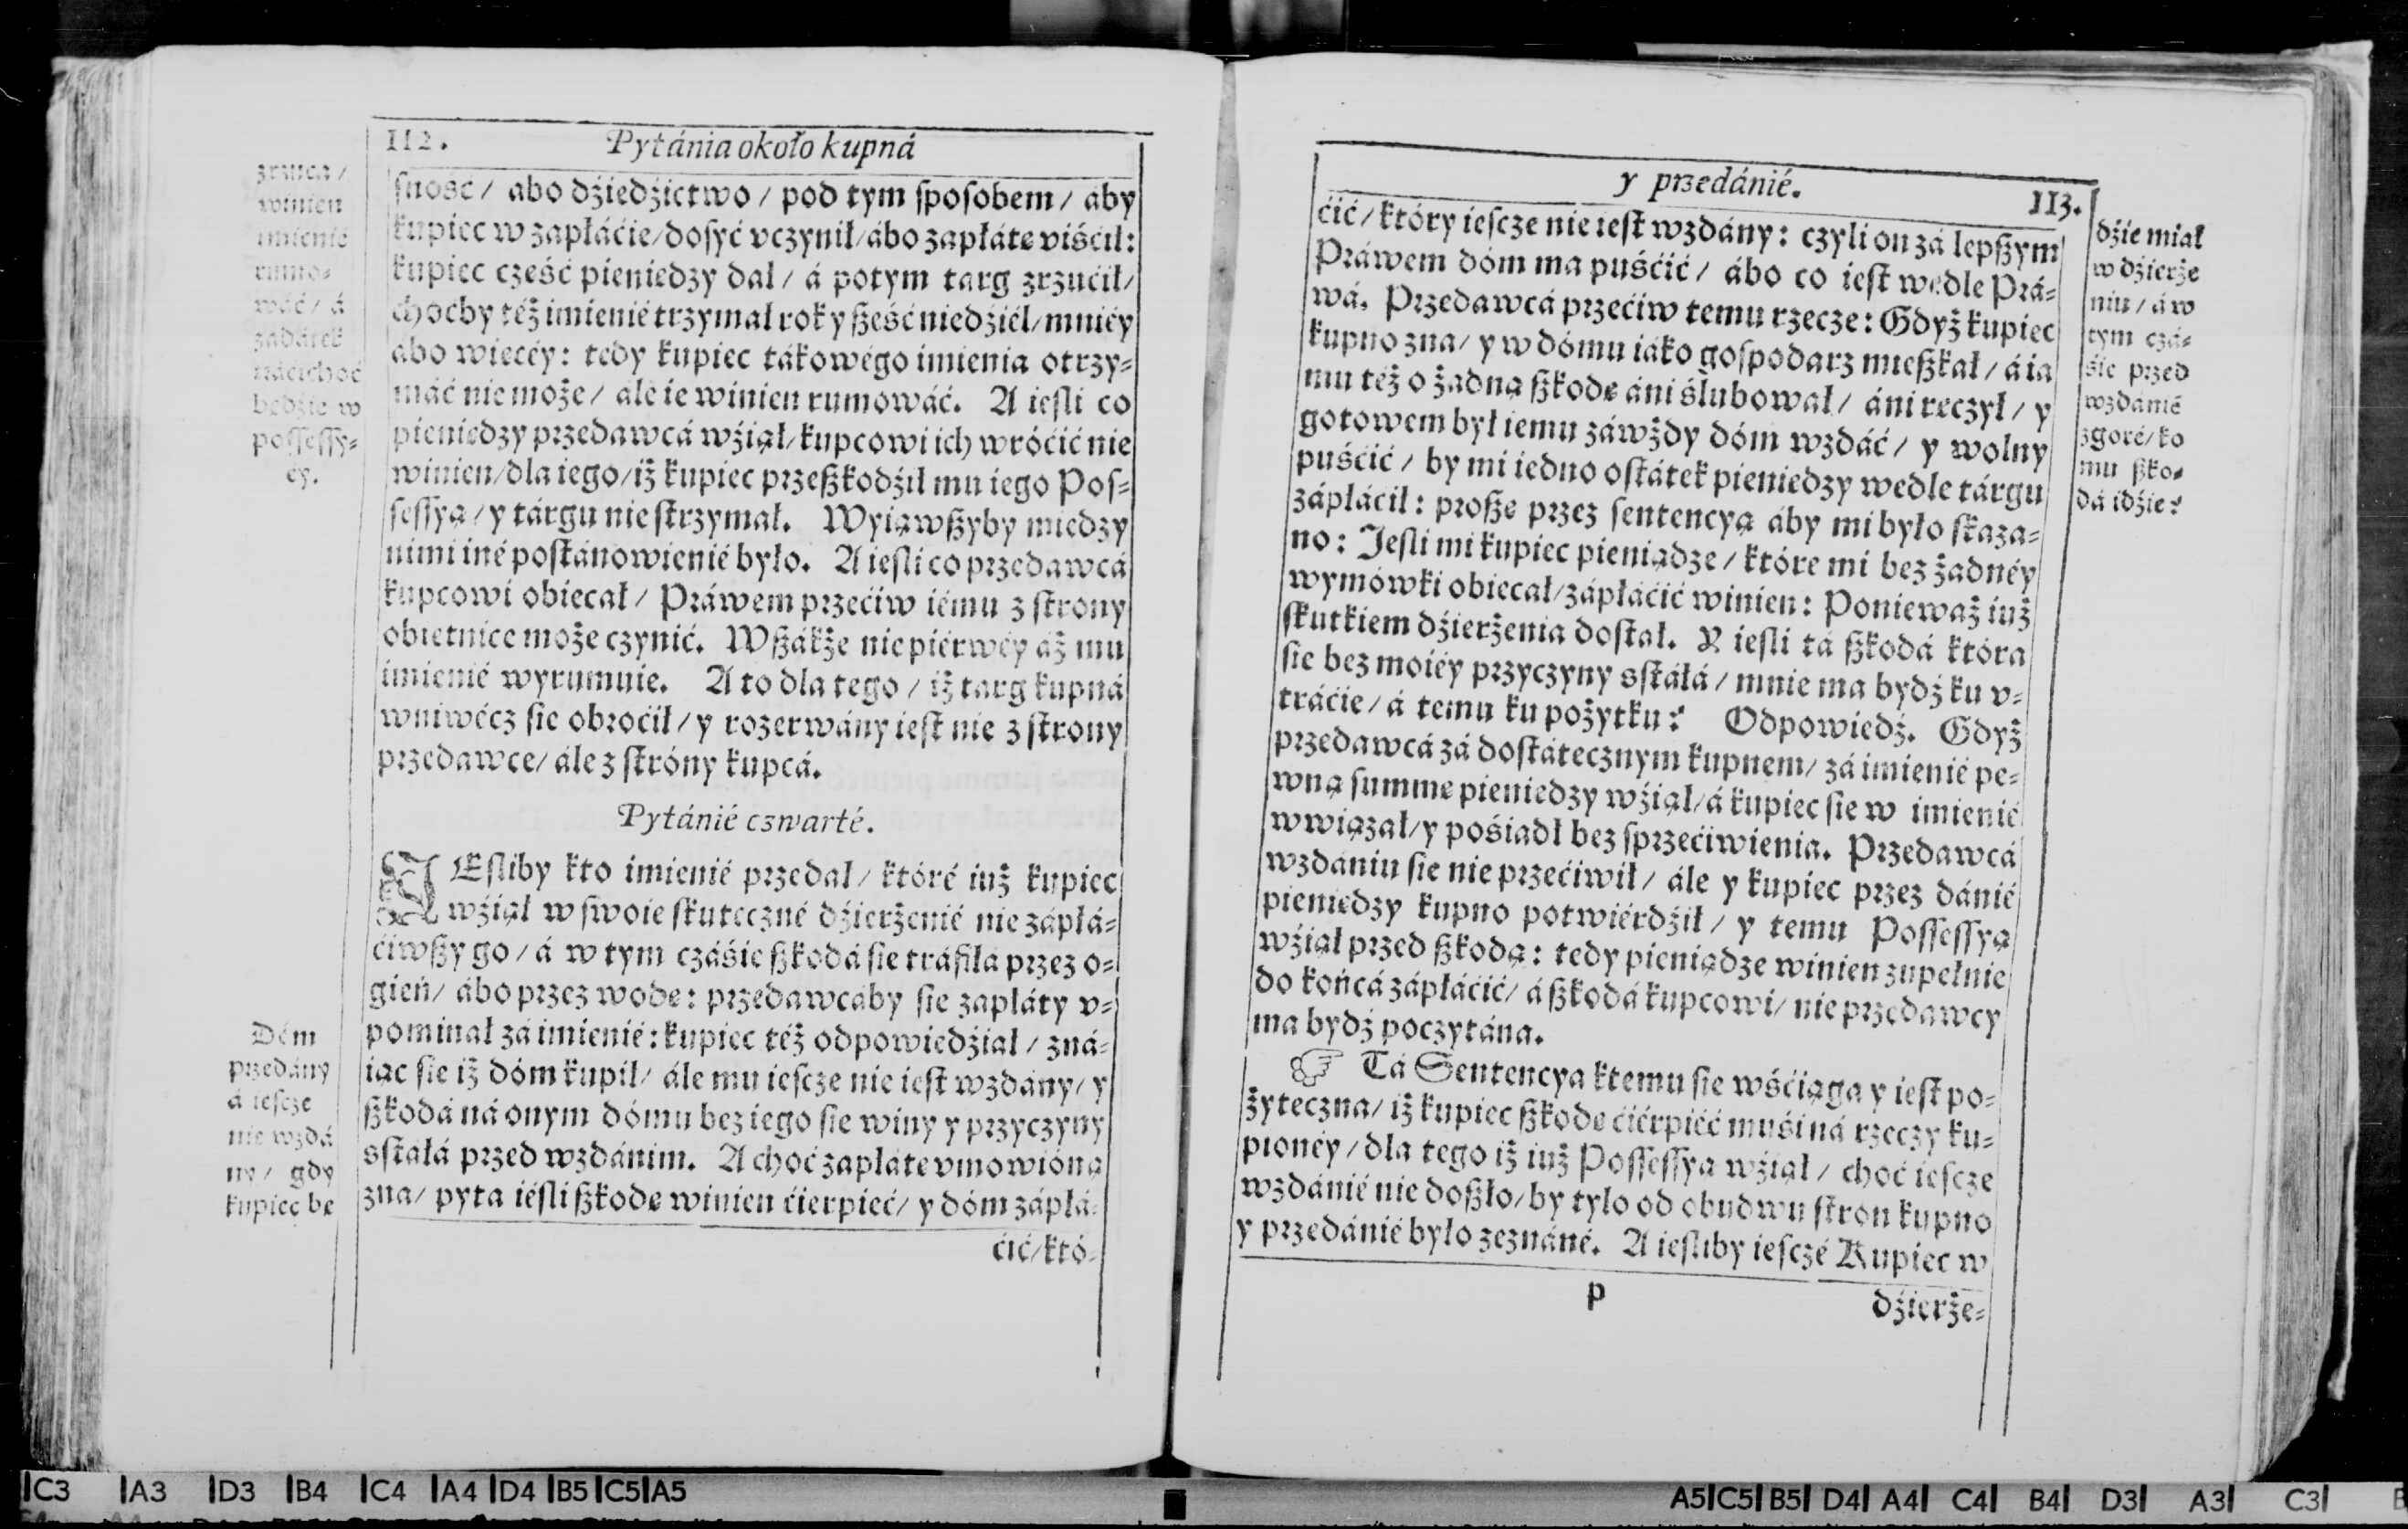 112. Pytánia około kupná
zrzuca /
winien
imienié
rumo-
wáć / á
zadátek
nácichoć
będźie w
possessy-
éy.
sność / ábo dźiedźictwo / pod tym sposobem / áby
kupiec w zapłáćie / dosyć vczynił / ábo zapłátę viśćił:
kupiec część pieniędzy dał / á potym targ zrzućił /
choćby téż imienié trzymał rok y sześć niedźiél / mniéy
ábo więcéy: tedy kupiec tákowégo imienia otrzy-
máć nie może / ále ie winien rumowáć. A iesli co
pieniędzy przedawcá wźiął / kupcowi ich wróćić nie
winien / dla iego / iż kupiec przeszkodźił mu iego Pos-
sessyą / y tárgu nie strzymał. Wyiąwszyby miedzy
nimi iné postánowienié było. A iesli co przedawcá
kupcowi obiecał / Práwem przećiw iému z strony
obietnice może czynić. Wszákże nie piérwéy áż mu
imienié wyrumuie. A to dla tego / iż targ kupná
wniwécz się obroćił / y rozerwány iest nie z strony
przedawce / ále z stróny kupcá.
Pytánié czwarté.
IEsliby kto imienié przedał / któré iuż kupiec
wźiął w swoie skuteczné dźierżenié nie zápłá-
ćiwszy go / á w tym czáśie szkodá się tráfiłá przez o-
gień / ábo przez wodę: przedawcáby się zapłáty v-
pominał zá imienié: kupiec téż odpowiedźiał / zná-
iąc się iż dóm kupił / ále mu iescze nie iest wzdány / y
szkodá ná onym dómu bez iego się winy y przyczyny
sstáłá przed wzdánim. A choć zapłátę vmowióną
zna / pyta iésli szkodę winien ćierpieć / y dóm zápłá-
Dóm
przedány
á iescze
nie wzdá
ny / gdy
kupiec bę
ćić / któ-
y przedánié. 113.
ćić / który iescze nie iest wzdány: czyli on zá lepszym
Práwem dóm ma puśćić / ábo co iest wedle Prá-
wá. Przedawcá przećiw temu rzecze: Gdyż kupiec
kupno zna / y w dómu iáko gospodarz mieszkał / á ia
mu téż o żadną szkodę áni ślubował / áni ręczył / y
gotowem był iemu záwżdy dóm wzdáć / y wolny
puśćić / by mi iedno ostátek pieniędzy wedle tárgu
zápłáćił: proszę przez sentencyą áby mi było skaza-
no: Iesli mi kupiec pieniądze / które mi bez żadnéy
wymówki obiecał / zápłáćić winien: Ponieważ iuż
skutkiem dźierżenia dostał. Y iesli tá szkodá która
się bez moiéy przyczyny sstáłá / mnie ma bydź ku v-
tráćie / á temu ku pożytku? Odpowiedź. Gdyż
przedawcá zá dostátecznym kupnem / zá imienié pe-
wną summę pieniędzy wźiął / á kupiec się w imienié
wwiązał / y pośiadł bez sprzećiwienia. Przedawcá
wzdániu się nie przećiwił / ále y kupiec przez dánié
pieniędzy kupno potwiérdźił / y temu Possessyą
wźiął przed szkodą: tedy pieniądze winien zupełnie
do końcá zápłáćić / á szkodá kupcowi / nie przedawcy
ma bydź poczytána.
☞ Tá Sentencya ktemu się wśćiąga y iest po-
żyteczna / iż kupiec szkodę ćiérpiéć muśi ná rzeczy ku-
pionéy / dla tego iż iuż Possessyą wźiął / choć iescze
wzdánié nie doszło / by tylo od obudwu stron kupno
y przedánié było zeznáné. A iesliby iesczé Kupiec w
dźie miał
w dźierże
niu / á w
tym czá-
śie przed
wzdánié
zgoré / ko
mu szko-
dá idźie?
P dźierże-